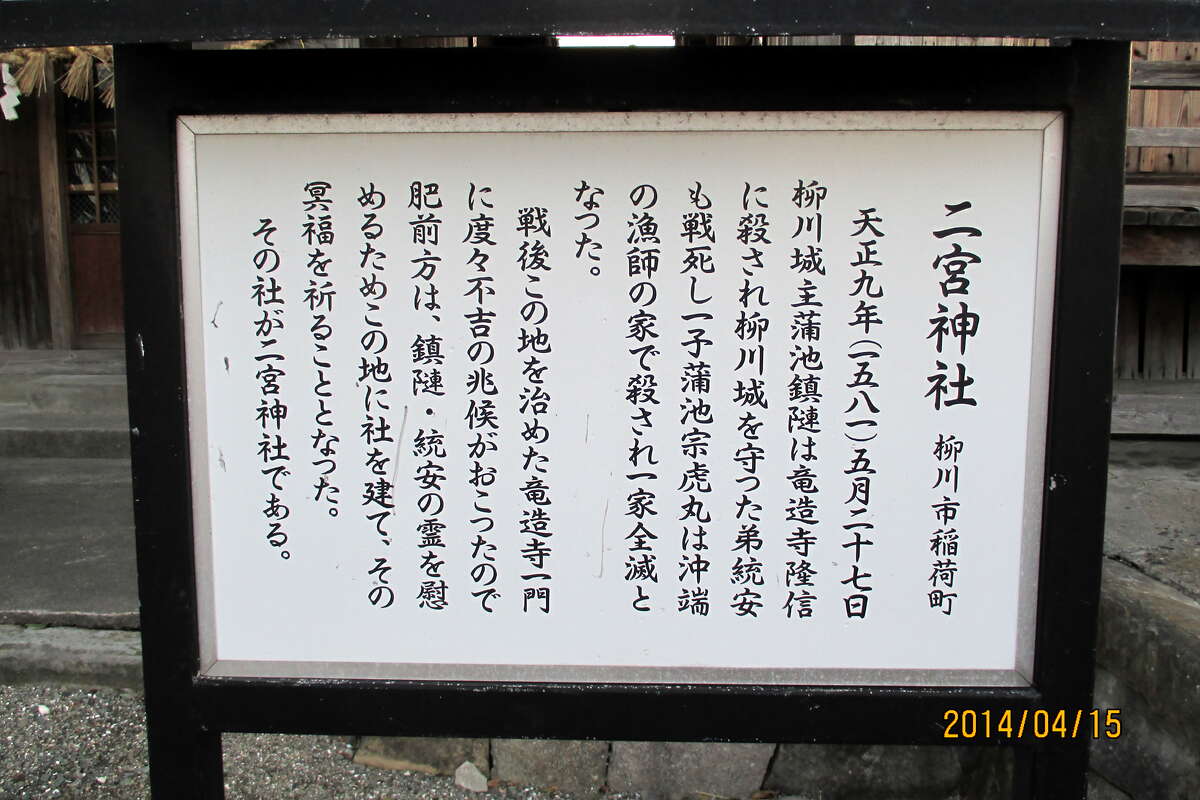 二宮神社 柳川市稲荷町
天正九年(一五八一)五月二十七日
柳川城主蒲池鎮漣は竜造寺隆信
に殺され柳川城を守つた弟統安
も戦死し一子蒲池宗虎丸は沖端
の漁師の家で殺され一家全滅と
なつた。
戦後この地を治めた竜造寺一門
に度々不吉の兆候がおこつたので
肥前方は、鎮漣・統安の霊を慰
めるためこの地に社を建て、その
冥福を祈ることとなつた。
その社が二宮神社である。
2014/04/15